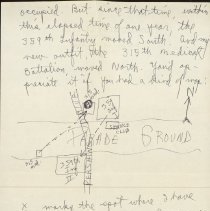 occupied. But since that time, within
this elapsed time of one year, the
359th Infantry moved South, and my
new outfit, the 315th Medical
Battalion, moved North. You'd ap-
preciate it if you had a kind of map:
N
SERVICE CLUB
PARADE GROUND
359th Inf
x marks the spot where I have